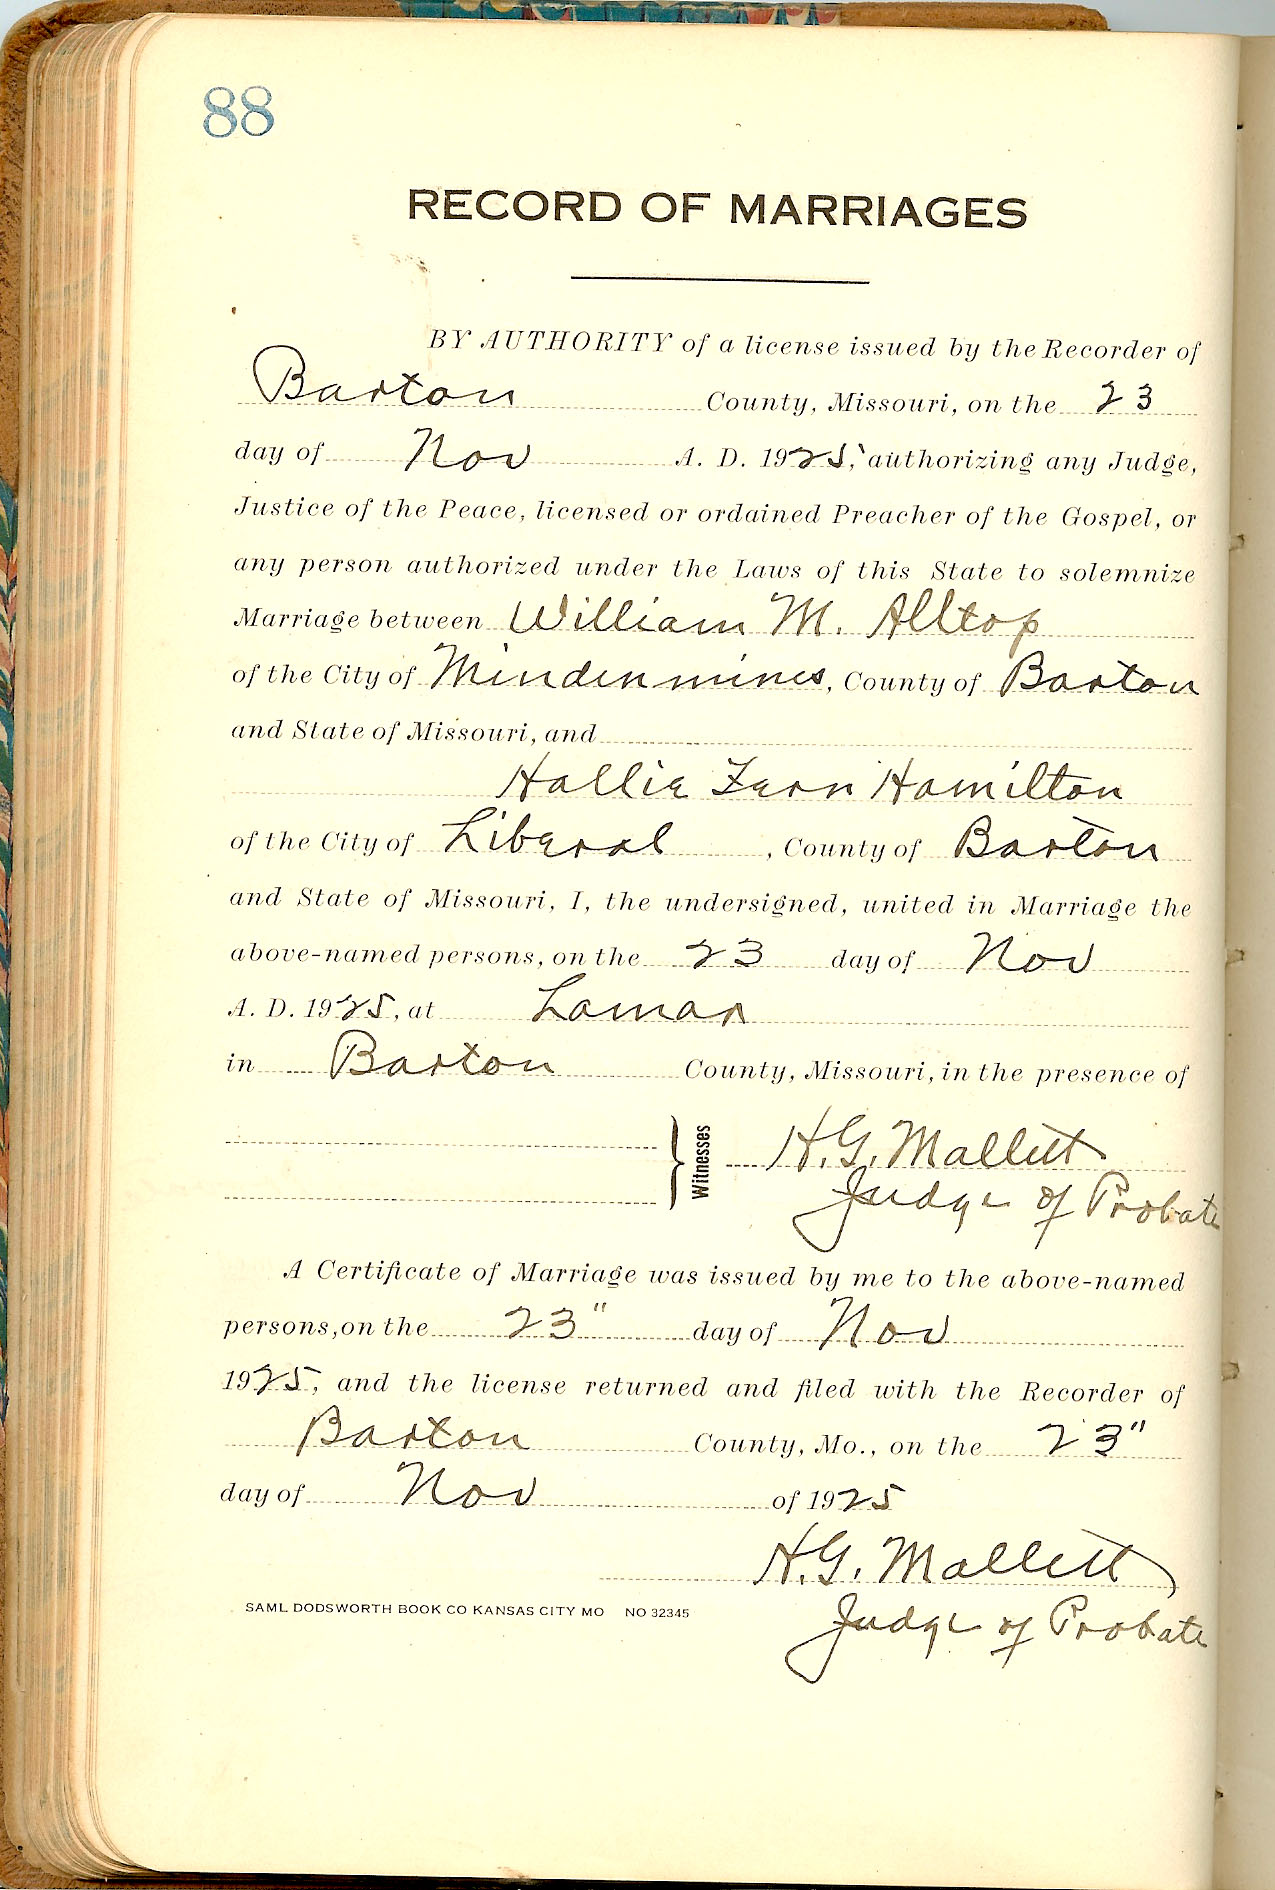 88
RECORD OF MARRIAGES
BY AUTHORITY of a license issued by the Recorder of
Barton County, Missouri, on the 23
day of Nov A. D. 1925, authorizing any Judge,
Justice of the Peace, licensed or ordained Preacher of the Gospel, or
any person authorized under the Laws of this State to solemnize
Marriage between William M. Alltop
of the City of Mindenmines, County of Barton
and State of Missouri, and
Hallie Fern Hamilton
of the City of Liberal, County of Barton
and State of Missouri, I, the undersigned, united in Marriage the
above-named persons, on the 23 day of Nov
A. D. 1925, at Lamar
in Barton County, Missouri, in the presence of
Witnesses H. G. Mallett
Judge of Probate
A Certificate of Marriage was issued by me to the above-named
persons, on the 23" day of Nov
1925, and the license returned and filed with the Recorder of
Barton County, Mo., on the 23"
day of Nov of 1925
H. G. Mallett
SAML DODSWORTH BOOK CO KANSAS CITY MO NO 32345
Judge of Probate